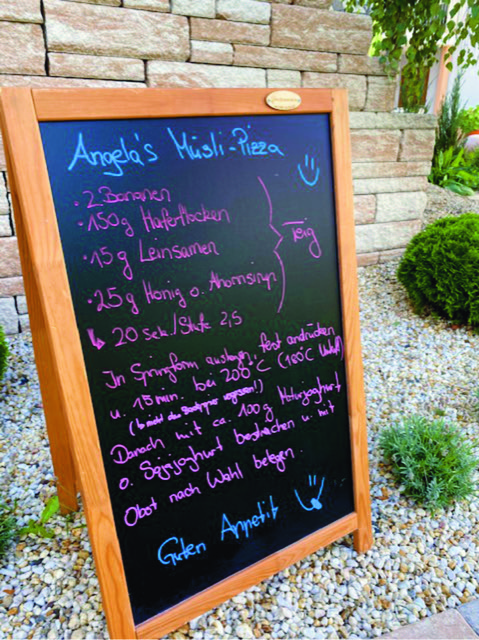 Angela's Müsli-Pizza
• 2 Bananen
• 150g Haferflocken
• 15g Leinsamen
• 25g Honig o. Ahornsirup
Teig
↳ 20 Sek./Stufe 2,5
In Springform auslegen, fest andrücken
u. 15 min. bei 200°C (180°C Umluft)
(↳ nicht das vergessen!)
Danach mit ca. 100g Naturjoghurt
o. Sojajoghurt bestreichen u. mit
Obst nach Wahl belegen.
Guten Appetit